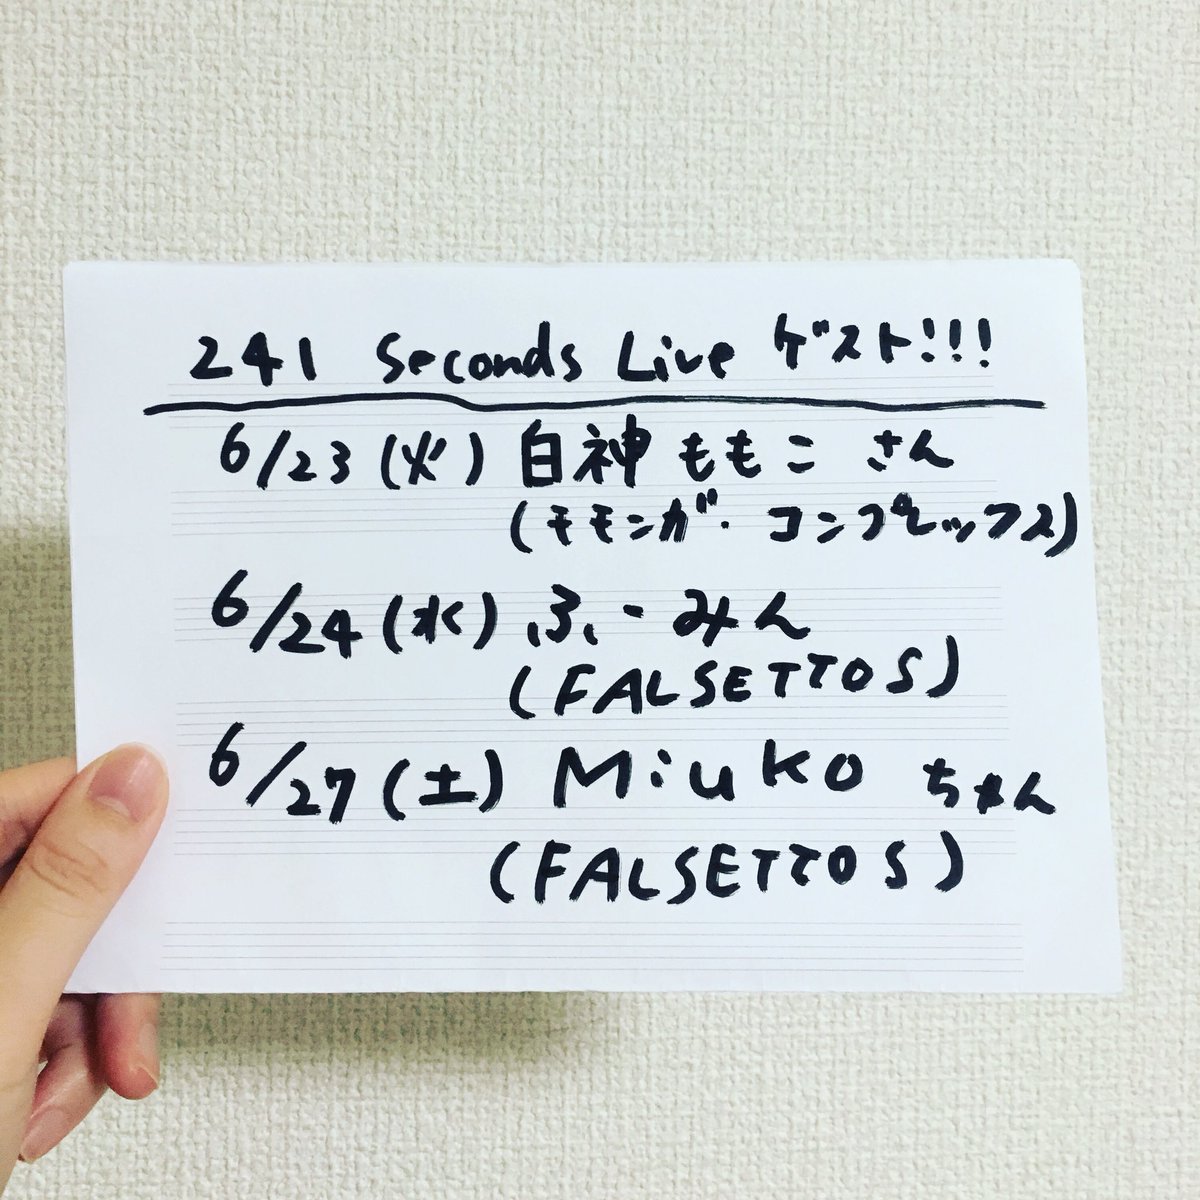 241 Seconds Live ゲスト!!!
6/23(火)白神ももこ さん
(モモンガ・コンプレックス)
6/24(水)ふーみん
(FALSETTOS)
6/27(土)Miuko ちゃん
(FALSETTOS)